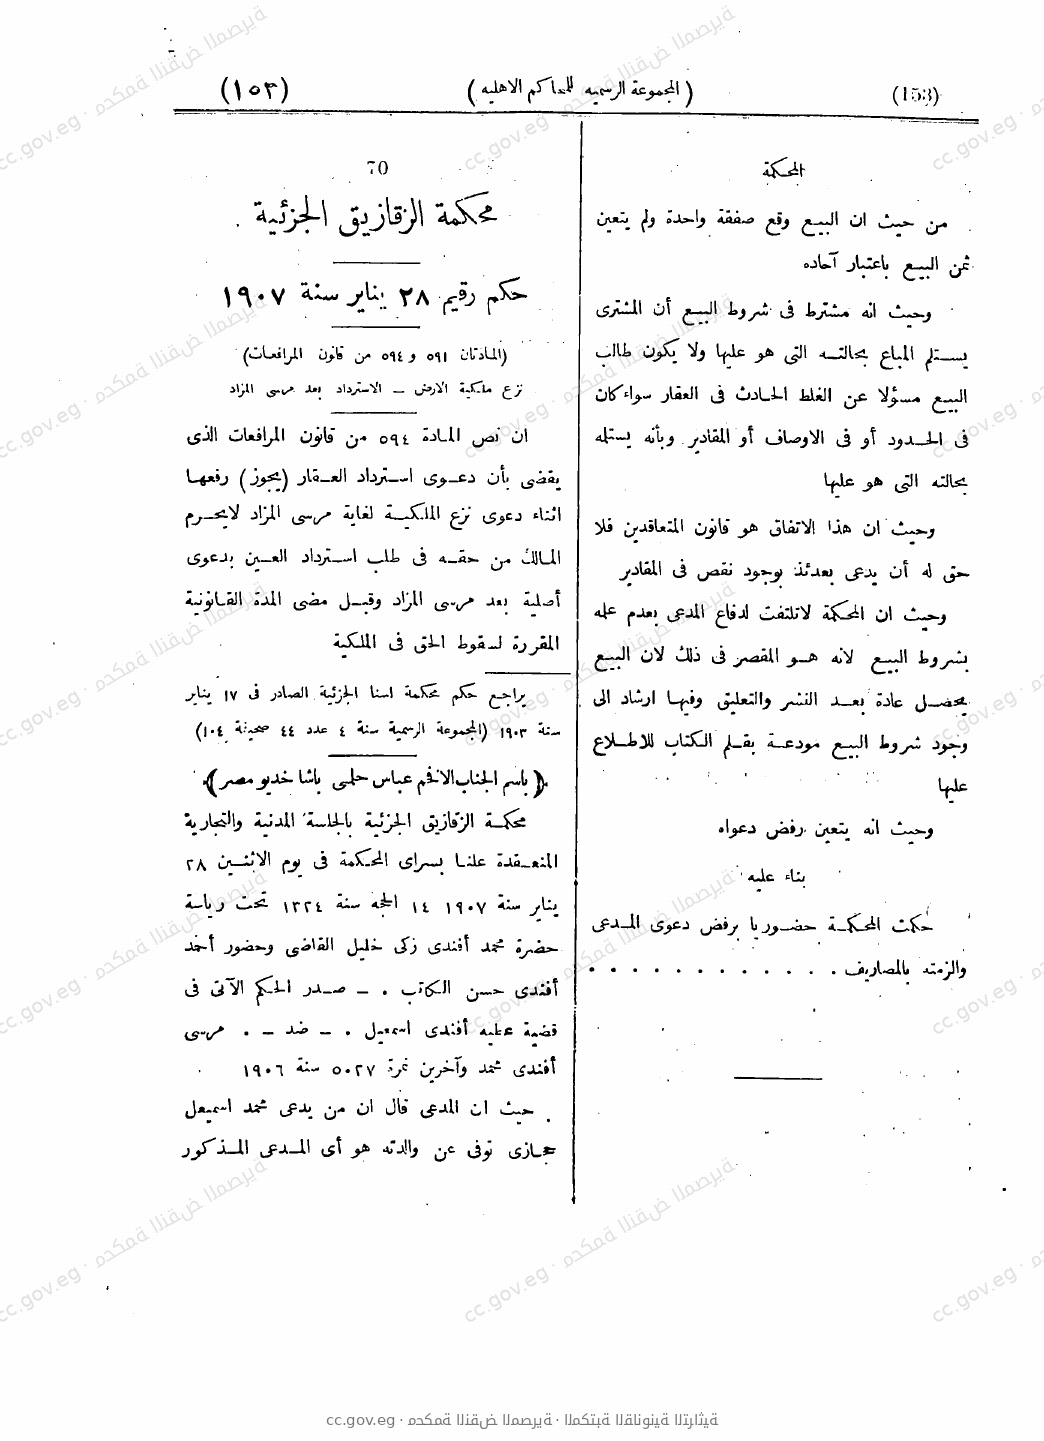 (153) (المجموعة الرسميه للمحاكم الاهليه) (١٥٣)
المحكمة
من حيث ان البيع وقع صفقة واحدة ولم يتعين
ثمن البيع باعتبار آحاده
وحيث انه مشترط فى شروط البيع أن المشترى
يستلم المباع بحالته التى هو عليها ولا يكون طالب
البيع مسؤلا عن الغلط الحادث فى العقار سواء كان
فى الحدود أو فى الاوصاف أو المقادير وبأنه يستلمه
بحالته التى هو عليها
وحيث ان هذا الاتفاق هو قانون المتعاقدين فلا
حق له أن يدعى بعدئذ بوجود نقص فى المقادير
وحيث ان المحكمة لاتلتفت لدفاع المدعى بعدم علمه
بشروط البيع لانه هو المقصر فى ذلك لان البيع
يحصل عادة بعد النشر والتعليق وفيها ارشاد الى
وجود شروط البيع مودعة بقلم الكتاب للاطلاع
عليها
وحيث انه يتعين رفض دعواه
بناء عليه
حكمت المحكمة حضوريا برفض دعوى المدعى
والزمته بالمصاريف . . . . . . . . . . . .
70
محكمة الزقازيق الجزئية
حكم رقيم ٢٨ يناير سنة ١٩٠٧
(المادتان ٥٩١ و ٥٩٤ من قانون المرافعات)
نزع ملكية الارض – الاسترداد بعد مرسى المزاد
ان نص المادة ٥٩٤ من قانون المرافعات الذى
يقضى بأن دعوى استرداد العقار (يجوز) رفعها
اثناء دعوى نزع الملكية لغاية مرسى المزاد لايحرم
المالك من حقه فى طلب استرداد العين بدعوى
أصلية بعد مرسى المزاد وقبل مضى المدة القانونية
المقررة لسقوط الحق فى الملكية
يراجع حكم محكمة اسنا الجزئية الصادر فى ١٧ يناير
سنة ١٩٠٣ (المجموعة الرسمية سنة ٤ عدد ٤٤ صحيفة ١٠٤)
(باسم الجناب الافخم عباس حلمى باشا خديو مصر)
محكمة الزقازيق الجزئية بالجلسة المدنية والتجارية
المنعقدة علنا بسراى المحكمة فى يوم الاثنين ٢٨
يناير سنة ١٩٠٧ ١٤ الحجه سنة ١٣٢٤ تحت رياسة
حضرة محمد أفندى زكى خليل القاضى وحضور أحمد
أفندى حسن الكاتب . – صدر الحكم الآتى فى
قضية عطيه أفندى اسمعيل . – ضد – . مرسى
أفندى محمد وآخرين نمرة ٥٠٢٧ سنة ١٩٠٦
حيث ان المدعى قال ان من يدعى محمد اسمعيل
حجازى توفى عن والدته هو أى المدعى المذكور
cc.gov.eg · محكمة النقض المصرية · المكتبة القانونية التراثية